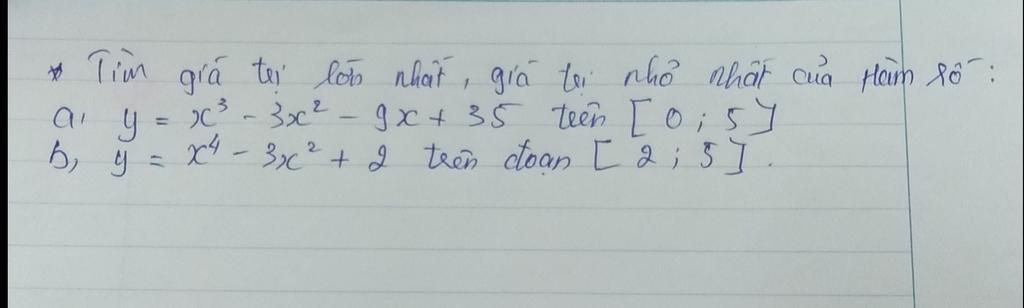 * Tìm giá trị lớn nhất, giá trị nhỏ nhất của hàm số:
a, y = x³ - 3x² - 9x + 35 trên [0; 5]
b, y = x⁴ - 3x² + 2 trên đoạn [2; 5].